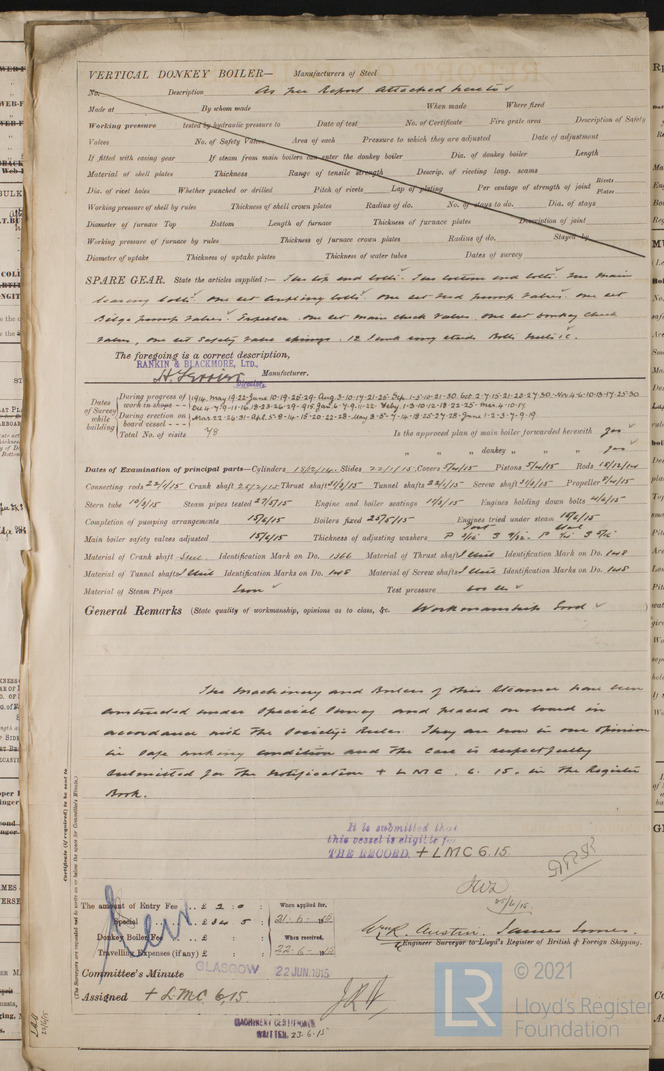 VERTICAL DONKEY BOILER— Manufacturers of Steel
No. Description As per Report attached hereto
Made at By whom made When made Where fixed
Working pressure tested by hydraulic pressure to Date of test No. of Certificate Fire grate area Description of Safety
Valves No. of Safety Valves Area of each Pressure to which they are adjusted Date of adjustment
If fitted with easing gear If steam from main boilers can enter the donkey boiler Dia. of donkey boiler Length
Material of shell plates Thickness Range of tensile strength Descrip. of riveting long. seams
Dia. of rivet holes Whether punched or drilled Pitch of rivets Lap of plating Per centage of strength of joint Rivets Plates
Working pressure of shell by rules Thickness of shell crown plates Radius of do. No. of stays to do. Dia. of stays
Diameter of furnace Top Bottom Length of furnace Thickness of furnace plates Description of joint
Working pressure of furnace by rules Thickness of furnace crown plates Radius of do. Stayed by
Diameter of uptake Thickness of uptake plates Thickness of water tubes Dates of survey
SPARE GEAR. State the articles supplied :— Two top end bolts. Two bottom end bolts. Two main
bearing bolts. One set coupling bolts. One set feed pump valves. One set
Bilge pump valves. Impeller. One set main check valves. One set donkey check
valves, one set safety valve springs. 12 Bolts nuts &c.
The foregoing is a correct description,
RANKIN & BLACKMORE, LTD.,
Manufacturer.
Director
Dates of Survey while building
During progress of work in shops - -
1914. May.19.22. June.10.19.25.29. Aug.3.10.17.21.25. Sep.1.5.10.21.30. Oct.2.7.15.21.22.27.30. Nov.4.6.10.13.17.25.30
Dec.4.7.9.11.16.18.23.26.29. 1915. Jan.6.7.9.11.22. Feby.1.3.10.12.18.22.25. Mar.4.10.17.
During erection on board vessel - - -
Mar.22.26.31. Apl.5.8.14.15.20.22.28. May.3.5.7.14.18.25.27.28. June.1.2.3.7.9.19
Total No. of visits 78 Is the approved plan of main boiler forwarded herewith Yes
" " " donkey " " " Yes
Dates of Examination of principal parts—Cylinders 18/2/14. Slides 22/1/15. Covers Pistons Rods 18/12/14
Connecting rods 22/1/15 Crank shaft 25/2/15 Thrust shaft Tunnel shafts Screw shaft Propeller
Stern tube 10/3/15 Steam pipes tested 27/5/15 Engine and boiler seatings Engines holding down bolts
Completion of pumping arrangements 15/6/15 Boilers fixed 25/5/15 Engines tried under steam 15/6/15
Main boiler safety valves adjusted 15/6/15 Thickness of adjusting washers Port Star
Material of Crank shaft Steel Identification Mark on Do. 1366 Material of Thrust shaft Steel Identification Mark on Do. 1048
Material of Tunnel shafts Steel Identification Marks on Do. 1048 Material of Screw shafts Steel Identification Marks on Do. 1048
Material of Steam Pipes Iron Test pressure
General Remarks (State quality of workmanship, opinions as to class, &c. Workmanship Good
The Machinery and Boilers of this Steamer have been
constructed under Special Survey and placed on board in
accordance with the Society's Rules. They are now in our opinion
in safe working condition and the case is respectfully
submitted for the notification + LMC. 6. 15. in the Register
Book.
Certificate (if required) to be sent to
(The Surveyors are requested not to write on or below the space for Committee's Minute.)
It is submitted that
this vessel is eligible for
THE RECORD. + LMC 6.15
The amount of Entry Fee .. £ 2 : 0 : When applied for,
Special .. £ 34 : 5 : 21-6-1915
Donkey Boiler Fee .. £ : : When received,
Travelling Expenses (if any) £ : : 22-6-1915
Wm R. Austin. James Innes.
Engineer Surveyor to Lloyd's Register of British & Foreign Shipping.
Committee's Minute GLASGOW 22 JUN.1915
Assigned + LMC 6,15
MACHINERY CERTIFICATE
WRITTEN. 23.6.15
© 2021
LR
Lloyd's Register
Foundation